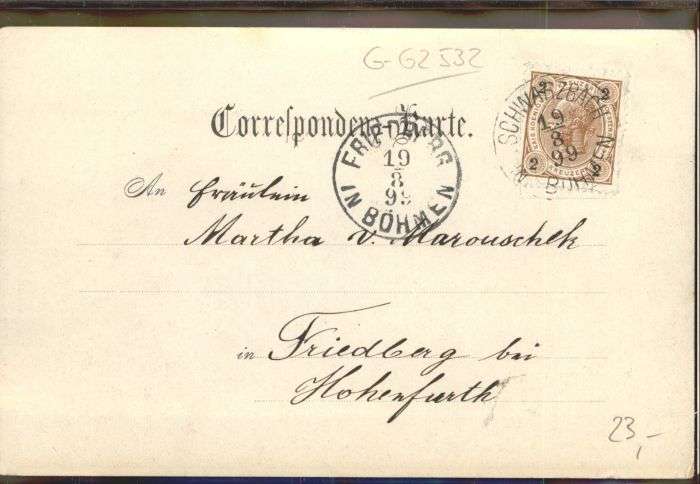 G-G2532
Correspondenz-Karte.
SCHWARZBACH
19
8
99
IN BÖHMEN
2 2
2 2
FRIEDBERG
19
8
99
IN BÖHMEN
An Fräulein
Martha v. Marouschek
in Friedberg bei
Hohenfurth
23,-